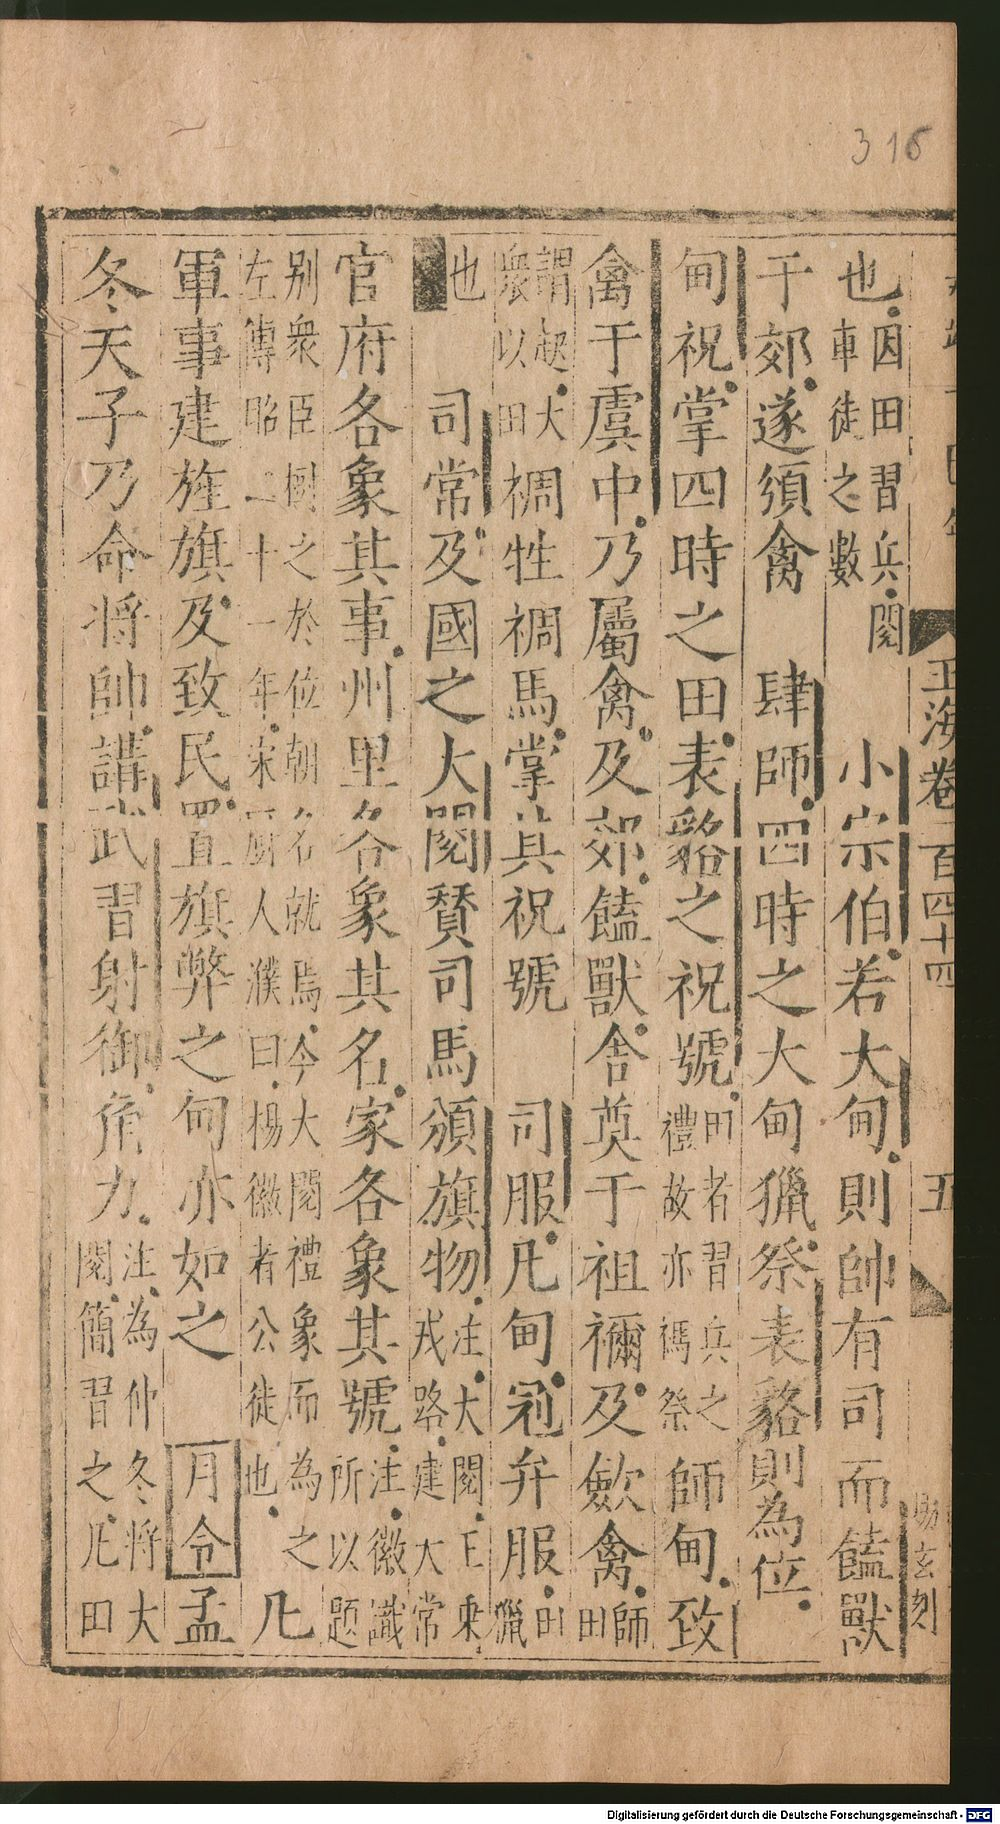 316
玉海卷一百四十四
五
玄刻
也因田習兵閱車徒之數 小宗伯若大甸則帥有司而饁獸
于郊遂頒禽 肆師四時之大甸獵祭表貉則為位
甸祝掌四時之田表貉之祝號田者習兵之禮故亦禡祭師甸致
禽于虞中乃屬禽及郊饁獸舍奠于祖禰及斂禽師田
謂起大眾以田禂牲禂馬掌其祝號 司服凡甸冠弁服田獵
也 司常及國之大閱贊司馬頒旗物注大閱王乘戎路建大常
官府各象其事州里各象其名家各象其號注徽識所以題
別眾臣樹之於位朝各就焉今大閱禮象而為之左傳昭二十一年宋廚人濮曰楊徽者公徒也凡
軍事建旌旗及致民置旗弊之甸亦如之 月令孟
冬天子乃命將帥講武習射御角力注為仲冬將大閱簡習之凡田
Digitalisierung gefördert durch die Deutsche Forschungsgemeinschaft - DFG